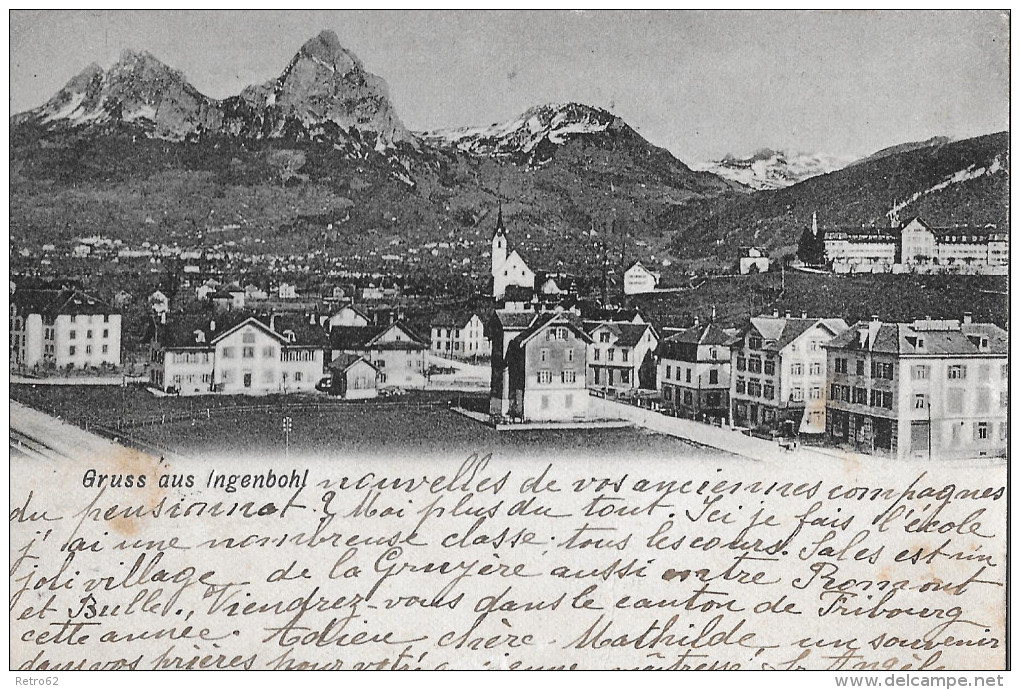 Gruss aus Ingenbohl nouvelles de vos anciennes compagnes
du pensionnat? Moi plus du tout. Ici je fais l'école
j'ai une nombreuse classe; tous les cours. Sales est un
joli village de la Gruyère aussi entre Romont
et Bulle. Viendrez-vous dans le canton de Fribourg
cette année. Adieu chère Mathilde, un souvenir
dans vos prières pour votre jeune maîtresse Sr Angèle
© Retro62
delcampe.net